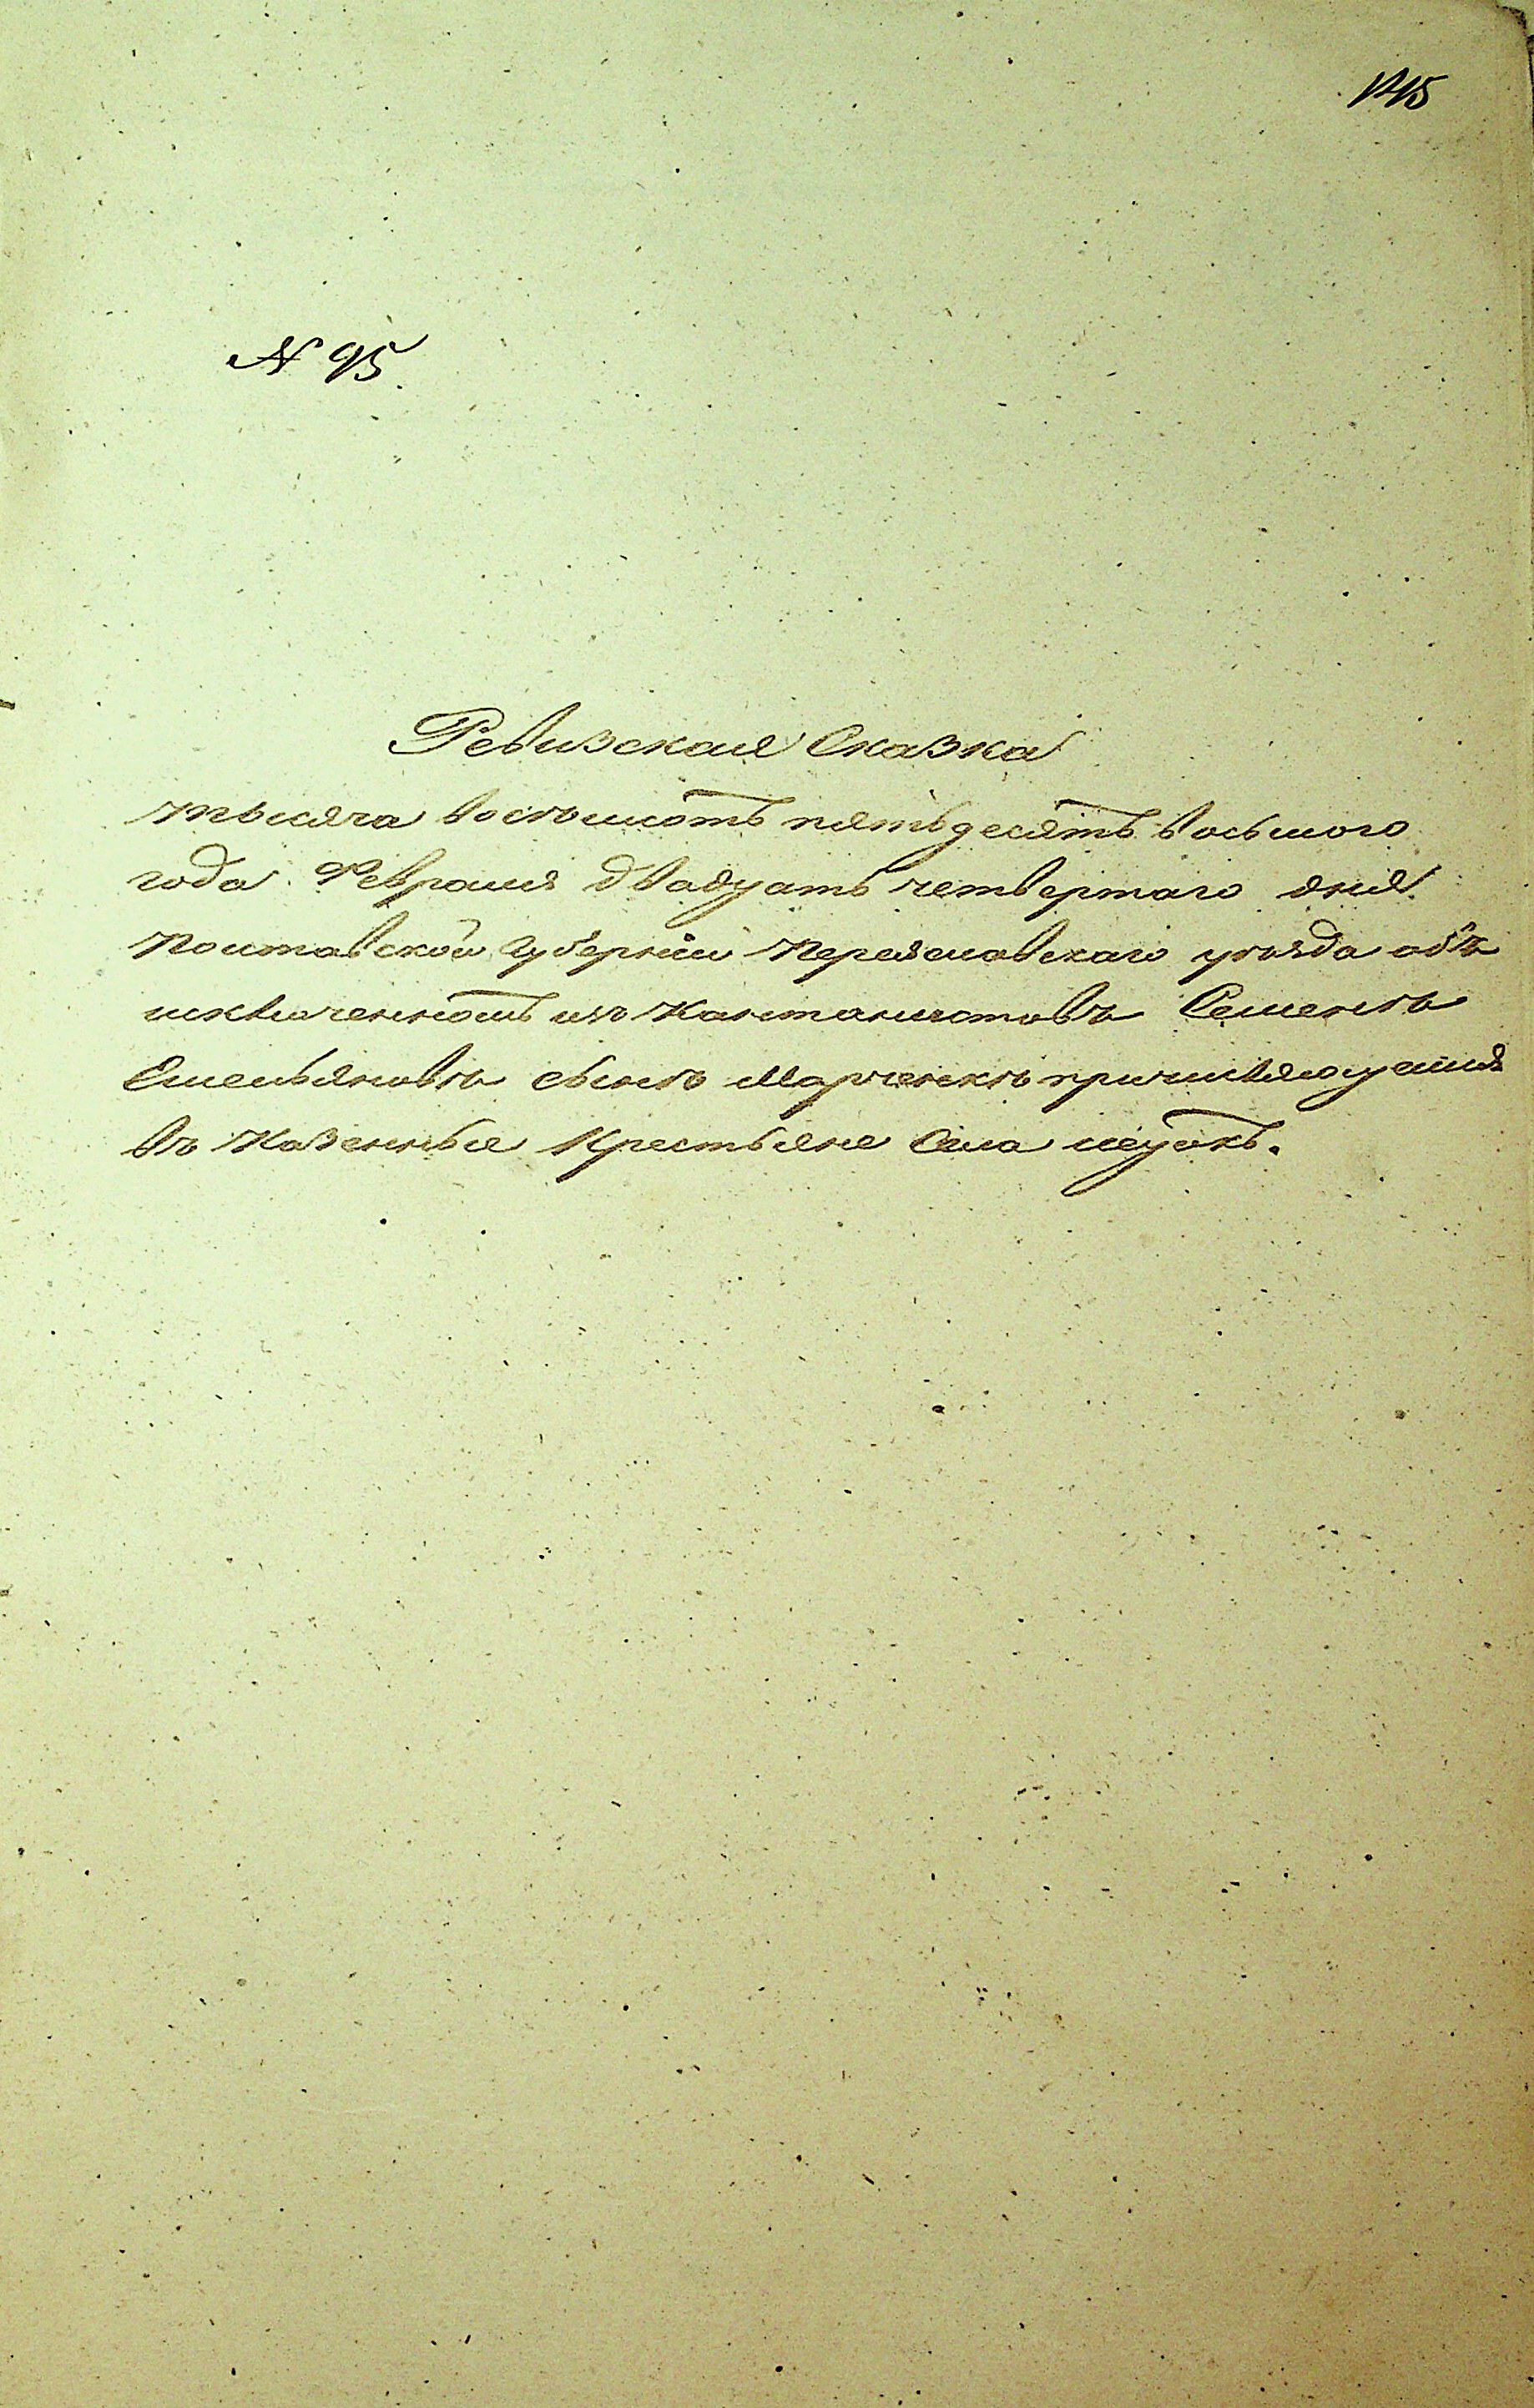 № 95
Ревизская Сказка
тысяча восемьсотъ пятьдесятъ восьмого
года Февраля двадцать четвертаго дня
Полтавской Губерніи Переяславскаго уѣзда объ
исключенномъ изъ Кантонистовъ Семенѣ
Емельяновѣ сынѣ Марченкѣ причисляющемся
въ Казенные Крестьяне Села